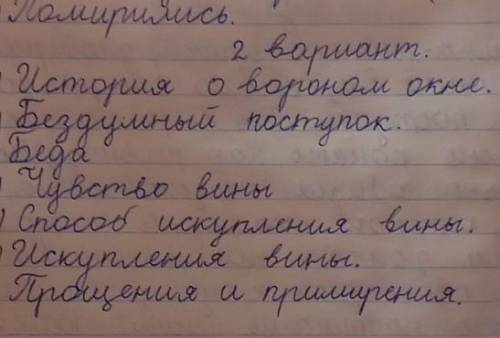 Помирились.
2 вариант.
История о вороном окне.
Бездумный поступок.
Беда
Чувство вины
Способ искупления вины.
Искупления вины.
Прощения и примирения.